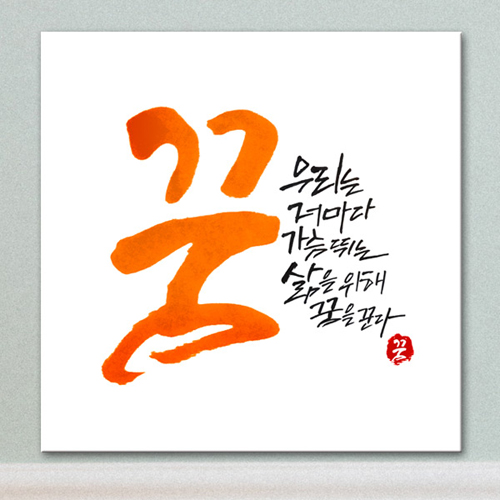 꿈
우리는
저마다
가슴 뛰는
삶을 위해
꿈을 꾼다
꿈